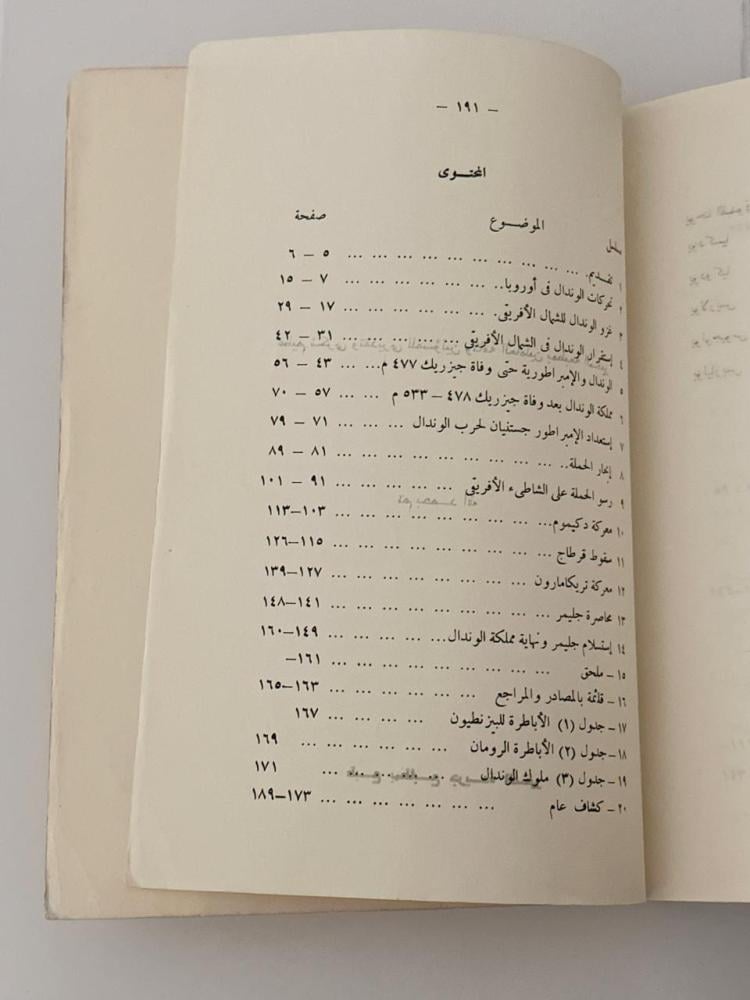 — ١٩١ —
المحتوى
الموضوع صفحة
مسلسل
١ تقديم. ... ... ... ... ... ... ... ... ... ... ٥ — ٦
٢ تحركات الوندال فى أوروبا.. ... ... ... ... ... ... ٧ — ١٥
٣ غزو الوندال للشمال الأفريقى. ... ... ... ... ... ... ١٧ — ٢٩
٤ إستقرار الوندال فى الشمال الأفريقى ... ... ... ... ... ٣١ — ٤٢
٥ الوندال والإمبراطورية حتى وفاة جيزريك ٤٧٧ م... ... ٤٣ — ٥٦
٦ مملكة الوندال بعد وفاة جيزريك ٤٧٨ — ٥٣٣ م ... ... ٥٧ — ٧٠
٧ إستعداد الإمبراطور جستنيان لحرب الوندال ... ... ... ٧١ — ٧٩
٨ إبحار الحملة.. ... ... ... ... ... ... ... ... ... ٨١ — ٨٩
٩ رسو الحملة على الشاطىء الأفريقى ... ... ... ... ... ٩١ — ١٠١
١٠ معركة دكيموم... ... ... ... ... ... ... ... ... ١٠٣—١١٣
١١ سقوط قرطاج ... ... ... ... ... ... ... ... ... ١١٥—١٢٦
١٢ معركة تريكامارون ... ... ... ... ... ... ... ... ١٢٧—١٣٩
١٣ محاصرة جليمر ... ... ... ... ... ... ... ... ... ١٤١—١٤٨
١٤ إستسلام جليمر ونهاية مملكة الوندال... ... ... ... ... ١٤٩—١٦٠
١٥ — ملحق ... ... ... ... ... ... ... ... ١٦١—
١٦ — قائمة بالمصادر والمراجع ... ... ... ... ... ... ١٦٣—١٦٥
١٧ — جدول (١) الأباطرة البيزنطيون ... ... ... ... ١٦٧
١٨ — جدول (٢) الأباطرة الرومان ... ... ... ... ... ... ١٦٩
١٩ — جدول (٣) ملوك الوندال ... ... ... ... ... ١٧١
٢٠ — كشاف عام ... ... ... ... ... ... ... ١٧٣—١٨٩